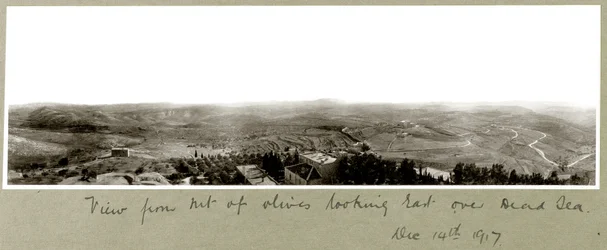 View from Mt of olives looking East over Dead Sea.
Dec 14th 1917